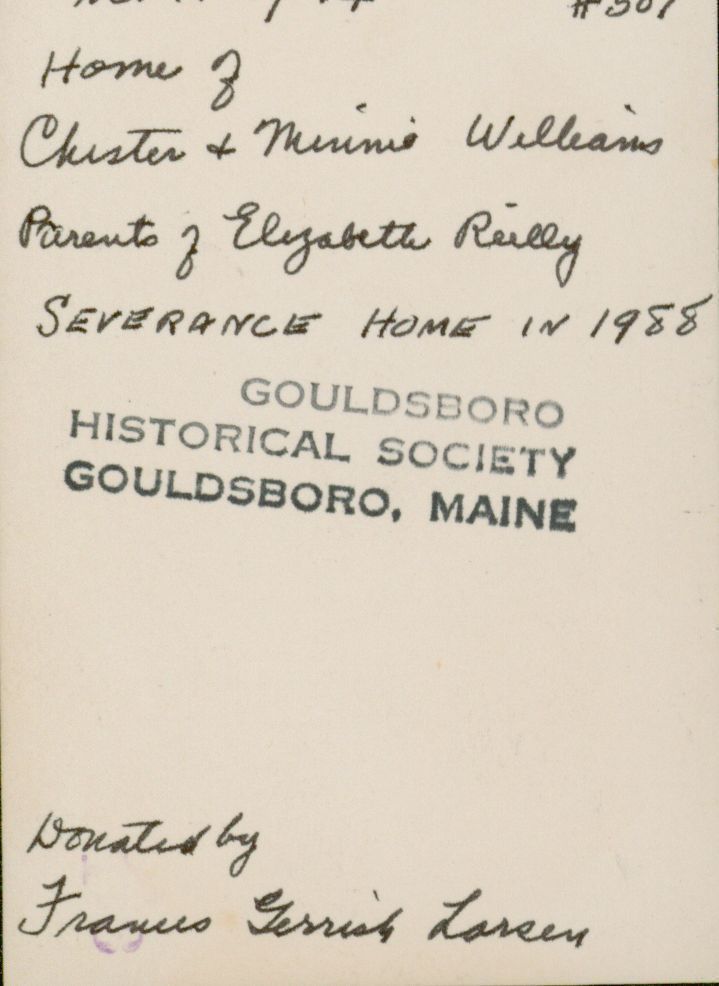 Home of
Chester + Minnie Williams
Parents of Elizabeth Reilly
SEVERANCE HOME IN 1988
GOULDSBORO
HISTORICAL SOCIETY
GOULDSBORO, MAINE
Donated by
Frances Gerrish Larsen